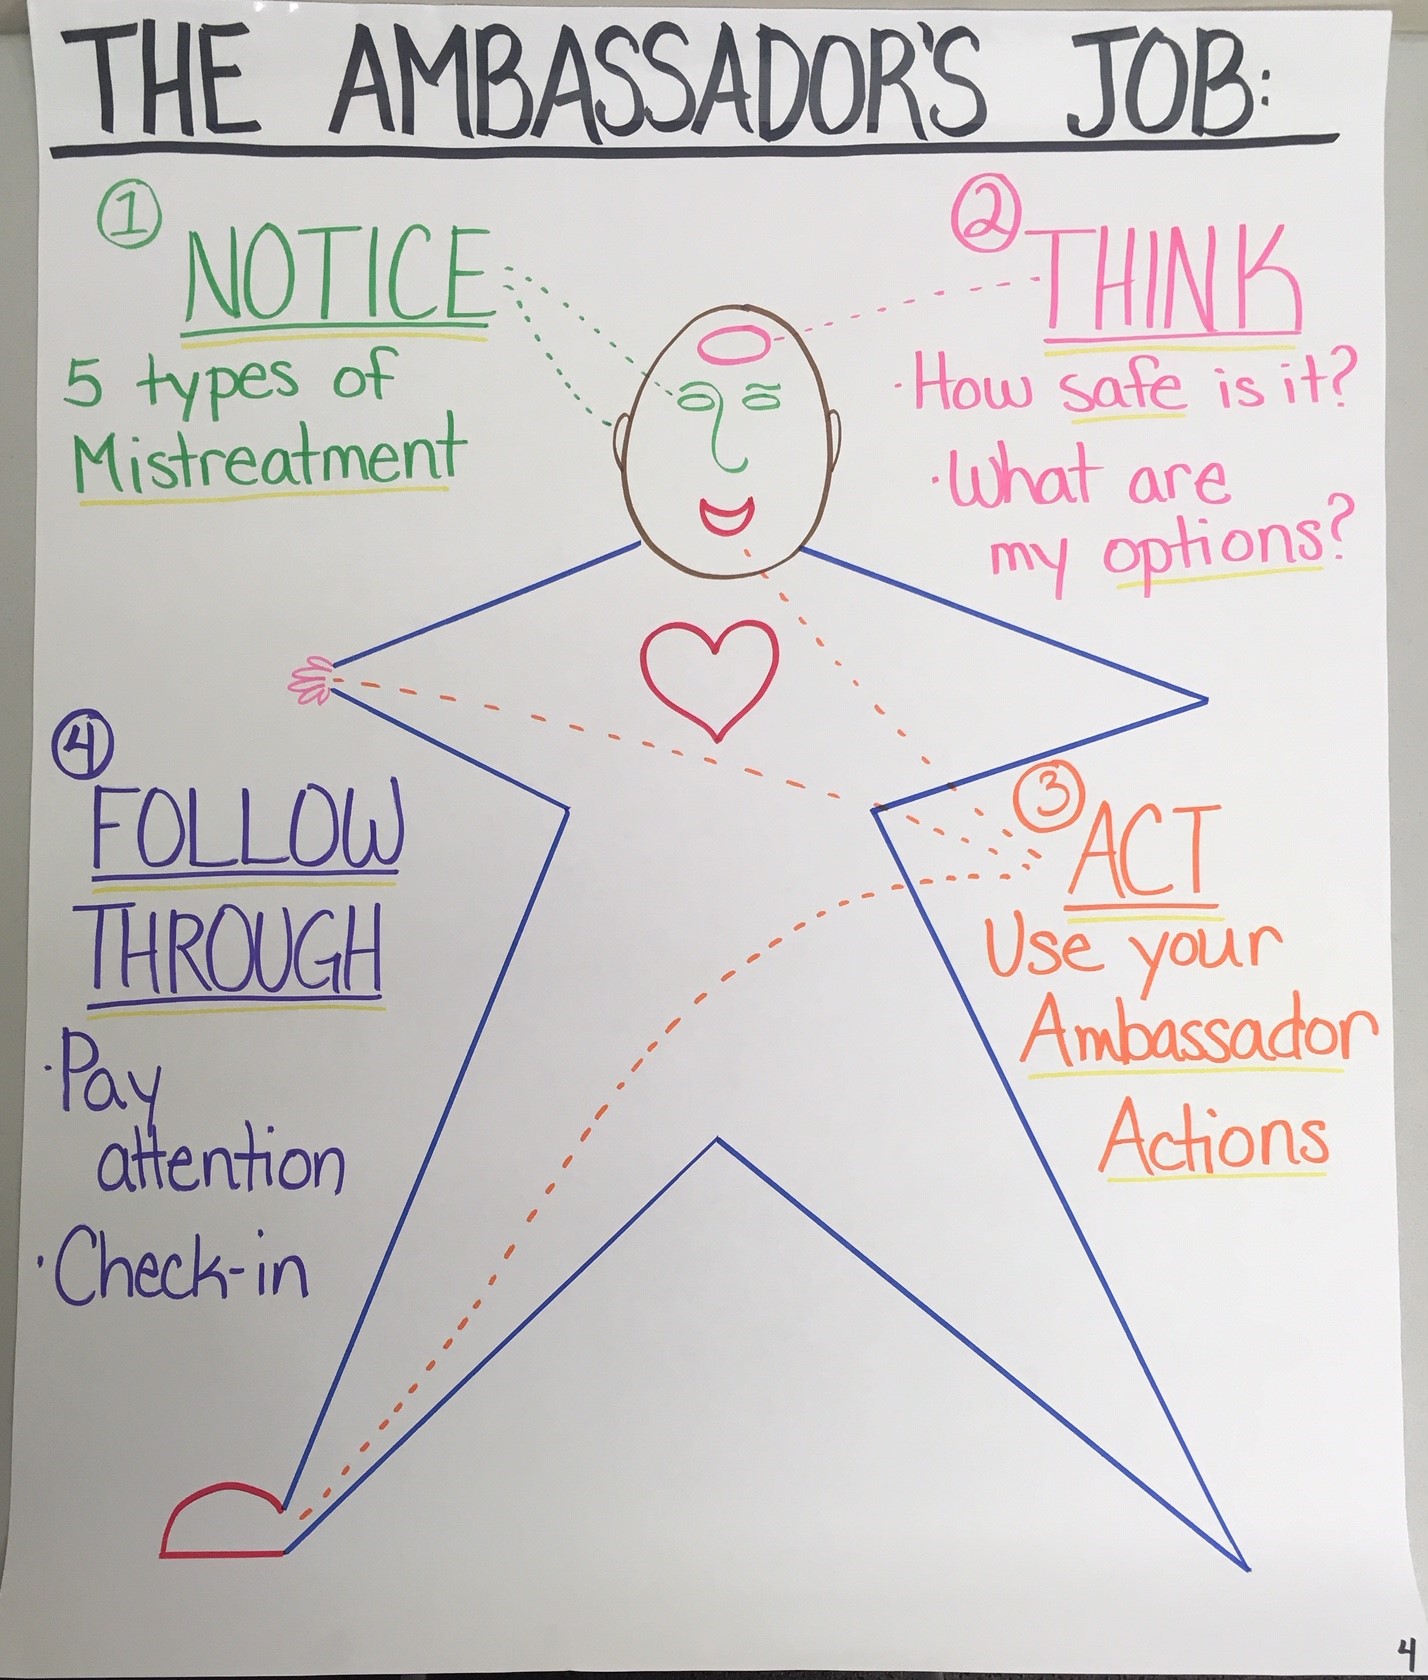 THE AMBASSADOR'S JOB:
①
NOTICE
5 types of
Mistreatment
②
THINK
·How safe is it?
·What are
my options?
③
ACT
Use your
Ambassador
Actions
④
FOLLOW
THROUGH
·Pay
attention
·Check-in
4